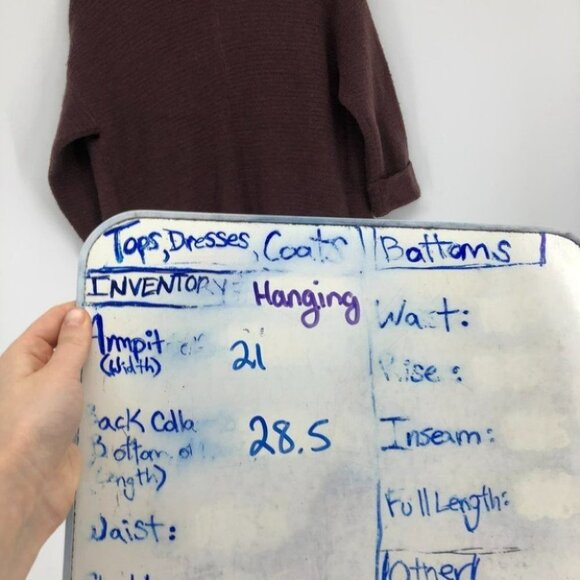 Tops, Dresses, Coats
Bottoms
INVENTORY
Hanging
Armpit
21
(Width)
ack Colla
28.5
Bottom of
ength)
Waist:
Wa t:
Rise:
Inseam:
Full Length:
Other